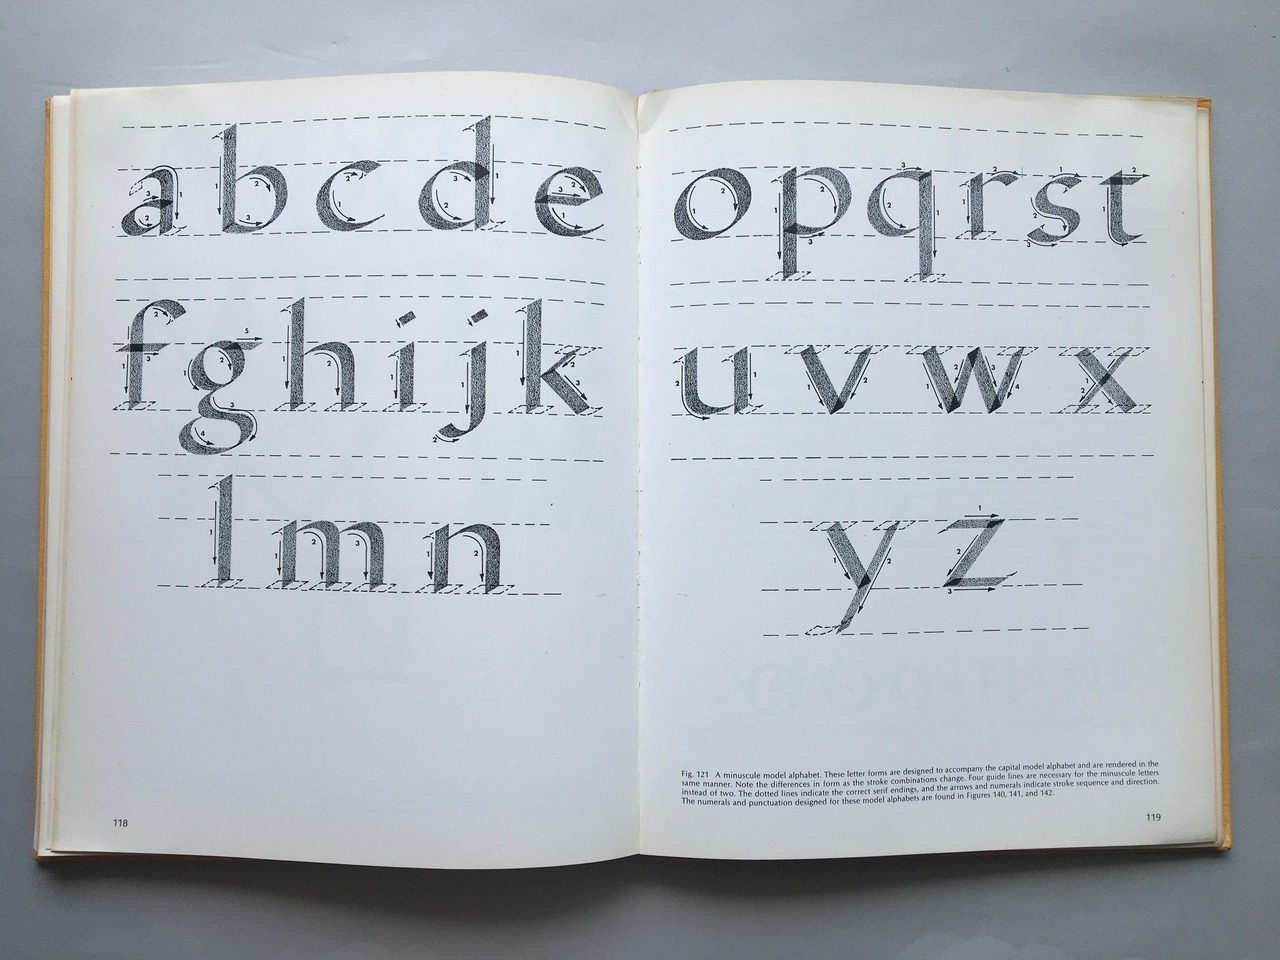 a b c d e
f g h i j k
l m n
118
o p q r s t
u v w x
y z
Fig. 121 A minuscule model alphabet. These letter forms are designed to accompany the capital model alphabet and are rendered in the
same manner. Note the differences in form as the stroke combinations change. Four guide lines are necessary for the minuscule letters
instead of two. The dotted lines indicate the correct serif endings, and the arrows and numerals indicate stroke sequence and direction.
The numerals and punctuation designed for these model alphabets are found in Figures 140, 141, and 142.
119